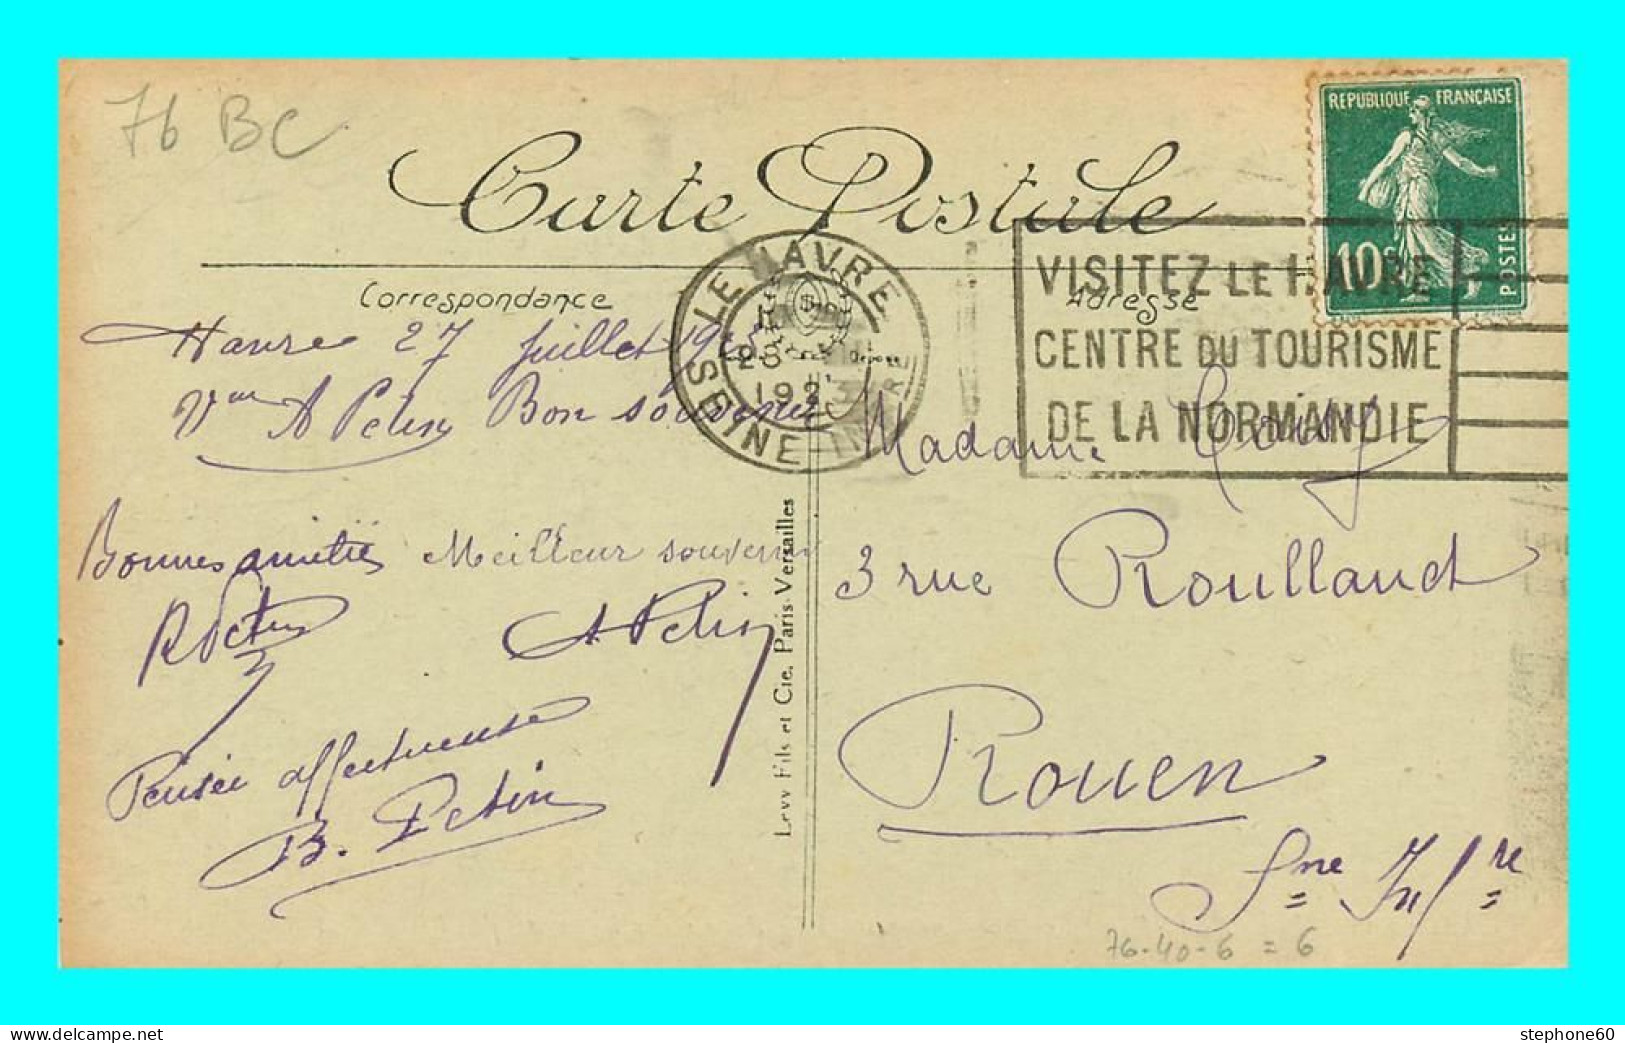 76 BC
Carte Postale
REPUBLIQUE FRANÇAISE
10c
POSTES
LE HAVRE
SEINE INFRE
28
VISITEZ LE HAVRE
CENTRE DU TOURISME
DE LA NORMANDIE
Correspondance
Adresse
Havre 27 Juillet
A Petin Bon souvenir
Bonnes amitiés
Meilleur souvenir
A Petin
Pensée affectueuse
B. Petin
Levy Fils et Cie. Paris-Versailles
Madame
3 rue Roulland
Rouen
Sne Infre
76-40-6 = 6
www.delcampe.net
stephone60